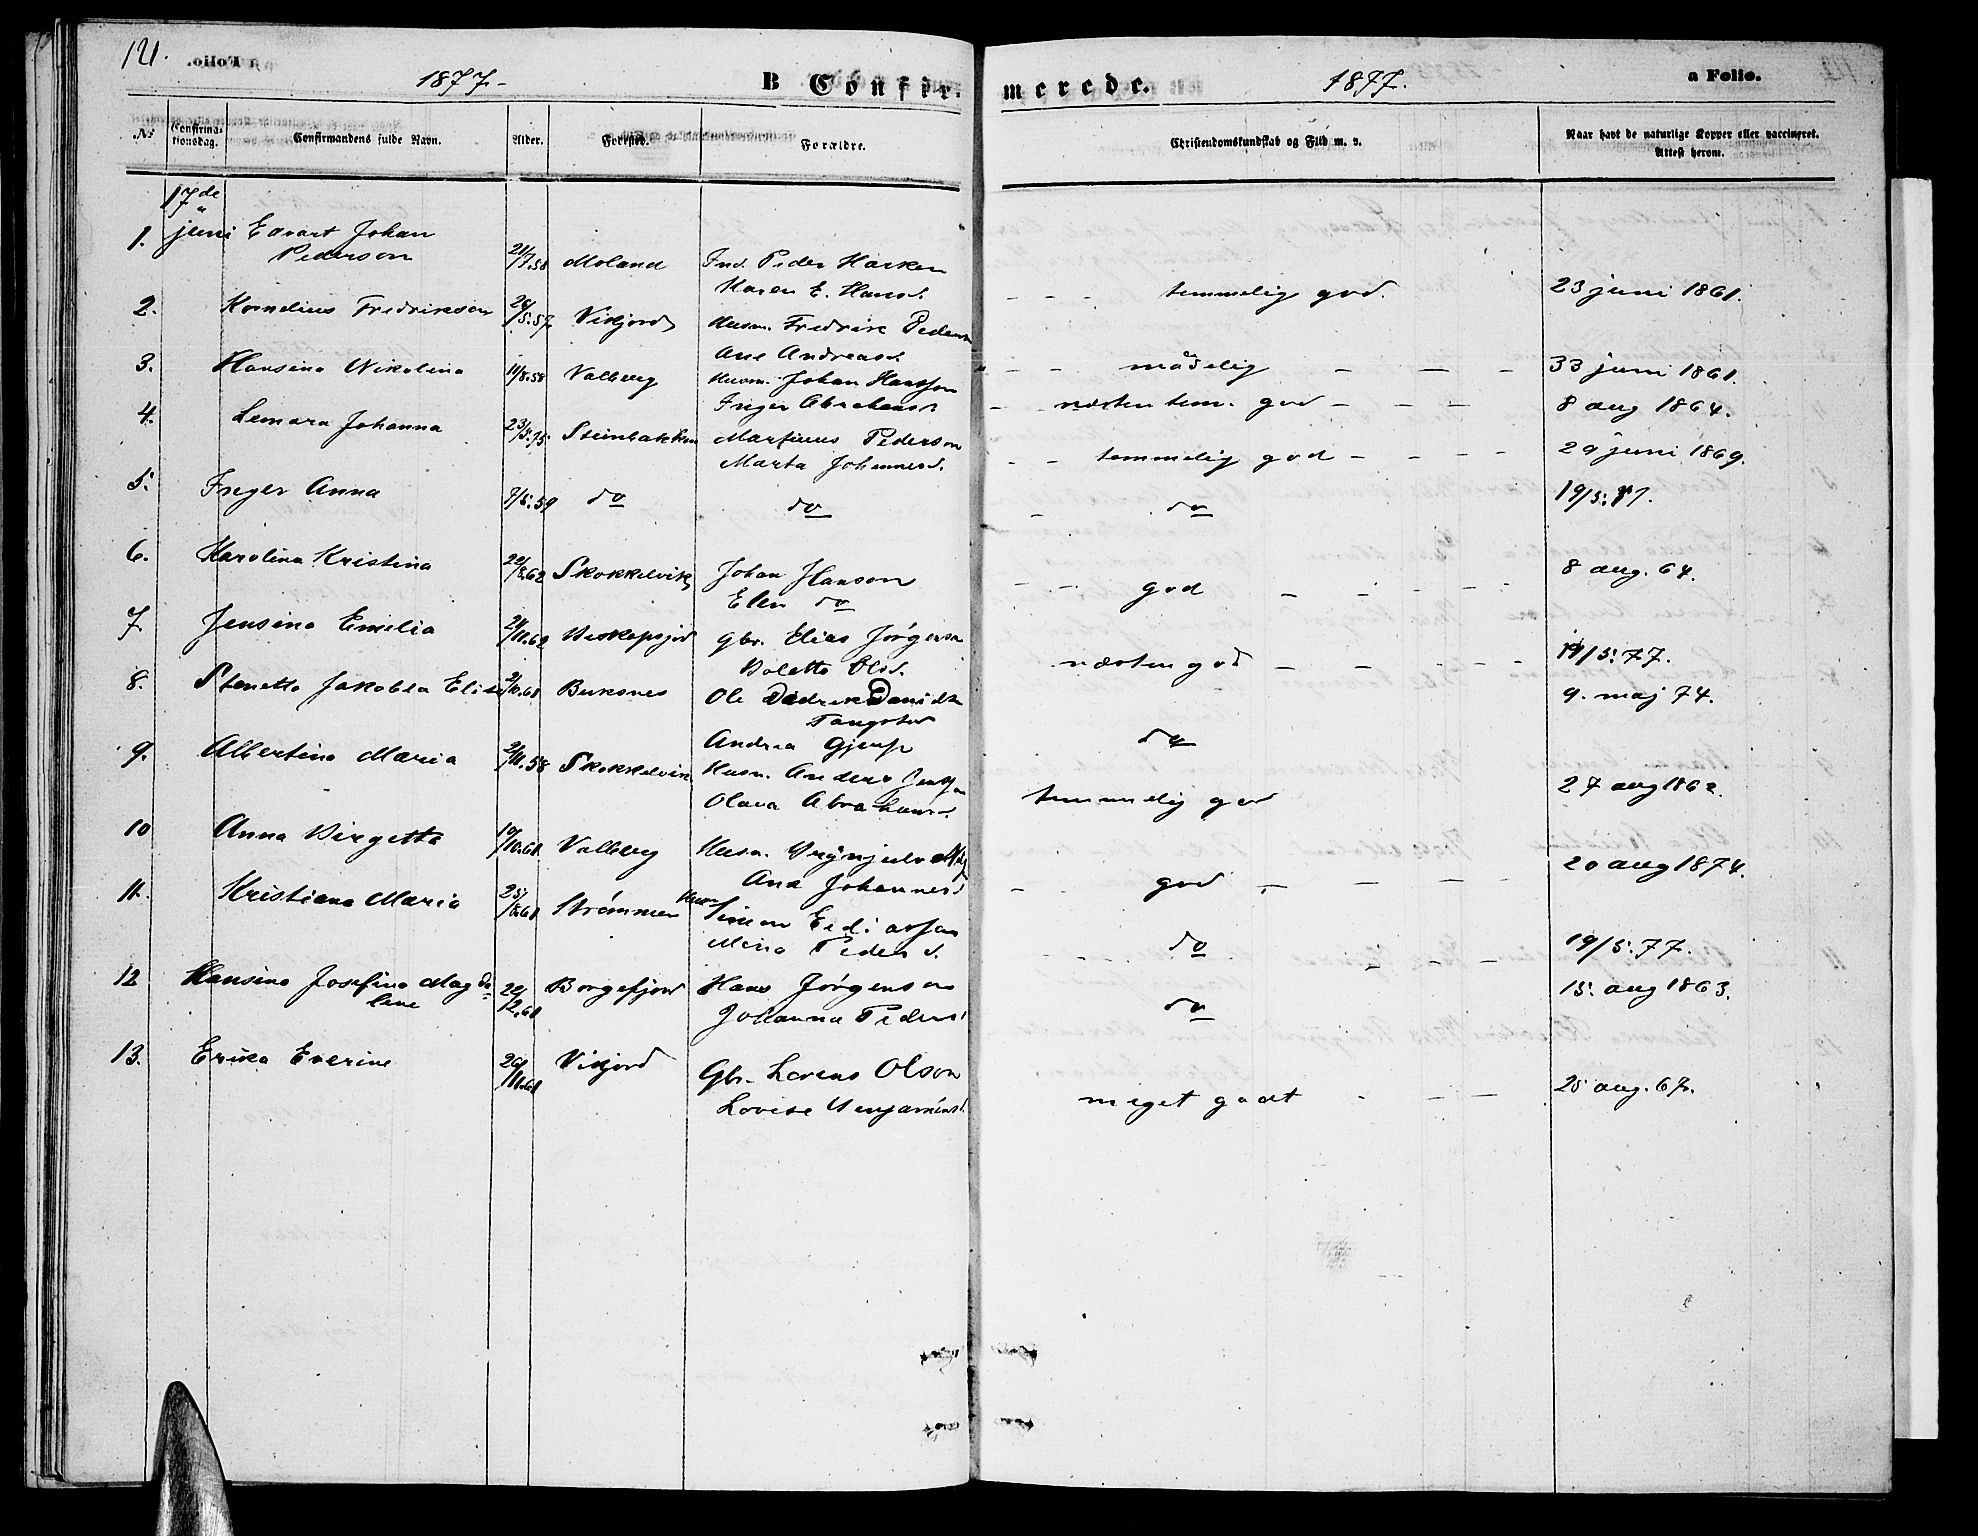 121.
1877.
B Confir-
merede.
1877.
a Folio.
No
Confirmationsdag.
Confirmandens fulde Navn.
Alder.
Forældre.
Christendomskundskab og Flid m. v.
Naar havt de naturlige Kopper eller vaccineret. Attest herom.
17de juni
1. Edvart Johan Pederson 21/7.58 Moland Ind. Peder
Karen E. Hansd. temmelig god. 23 juni 1861.
2. Kornelius Fredrikson 5.57 Vikjord Husm. Fredrik
Ane Andreasd. mådelig 33 juni 1861.
3. Hansina Nikolina 11/8.58 Valberg Husm. Johan Hansson
Inger Abrahamsd næsten tem. god 8 aug 1864.
4. Lenara Johanna Steinbakken Martinus Pederson
Marta Johannesd. temmelig god 29 juni 1869.
5. Inger Anna 7/5.59 do do do
6. Karolina Kristina 22/8.62 Skokkelvik Johan Hanson
Elen do god 8 aug. 64.
7. Jensina Emelia 24/11.62 gbr. Elias Jörgenson
Boletta Olsd. næsten god 19/5.77.
8. Stenetta Jakobea Elise Buksnes Ole Didrik Davidsen
Tangstad
Andrea Gjersp do 9. maj 74.
9. Albertina Maria 2/11.58 Skokkelvik Husm. Anders Jensson
Olava Abrahamsd. temmelig god 27 aug 1862.
10 Anna Birgetta 19/10.61 Valberg Husm. Brynjulv
Ana Johannesd god 20 aug 1874.
11. Kristiana Maria 25/8.61 Strömmen Husm Simon
Mena Pedersd. do 19/5.77.
12 Hansina Josefina Magdalene 22/2.61 Borgefjord Hans Jörgenson
Johanna Pedersd do 15. aug 1863.
13. Erika Everine 26/11.61 Vikjord Gbr. Lorens Olson
Lovise Benjaminsd. meget godt 25 aug. 67.